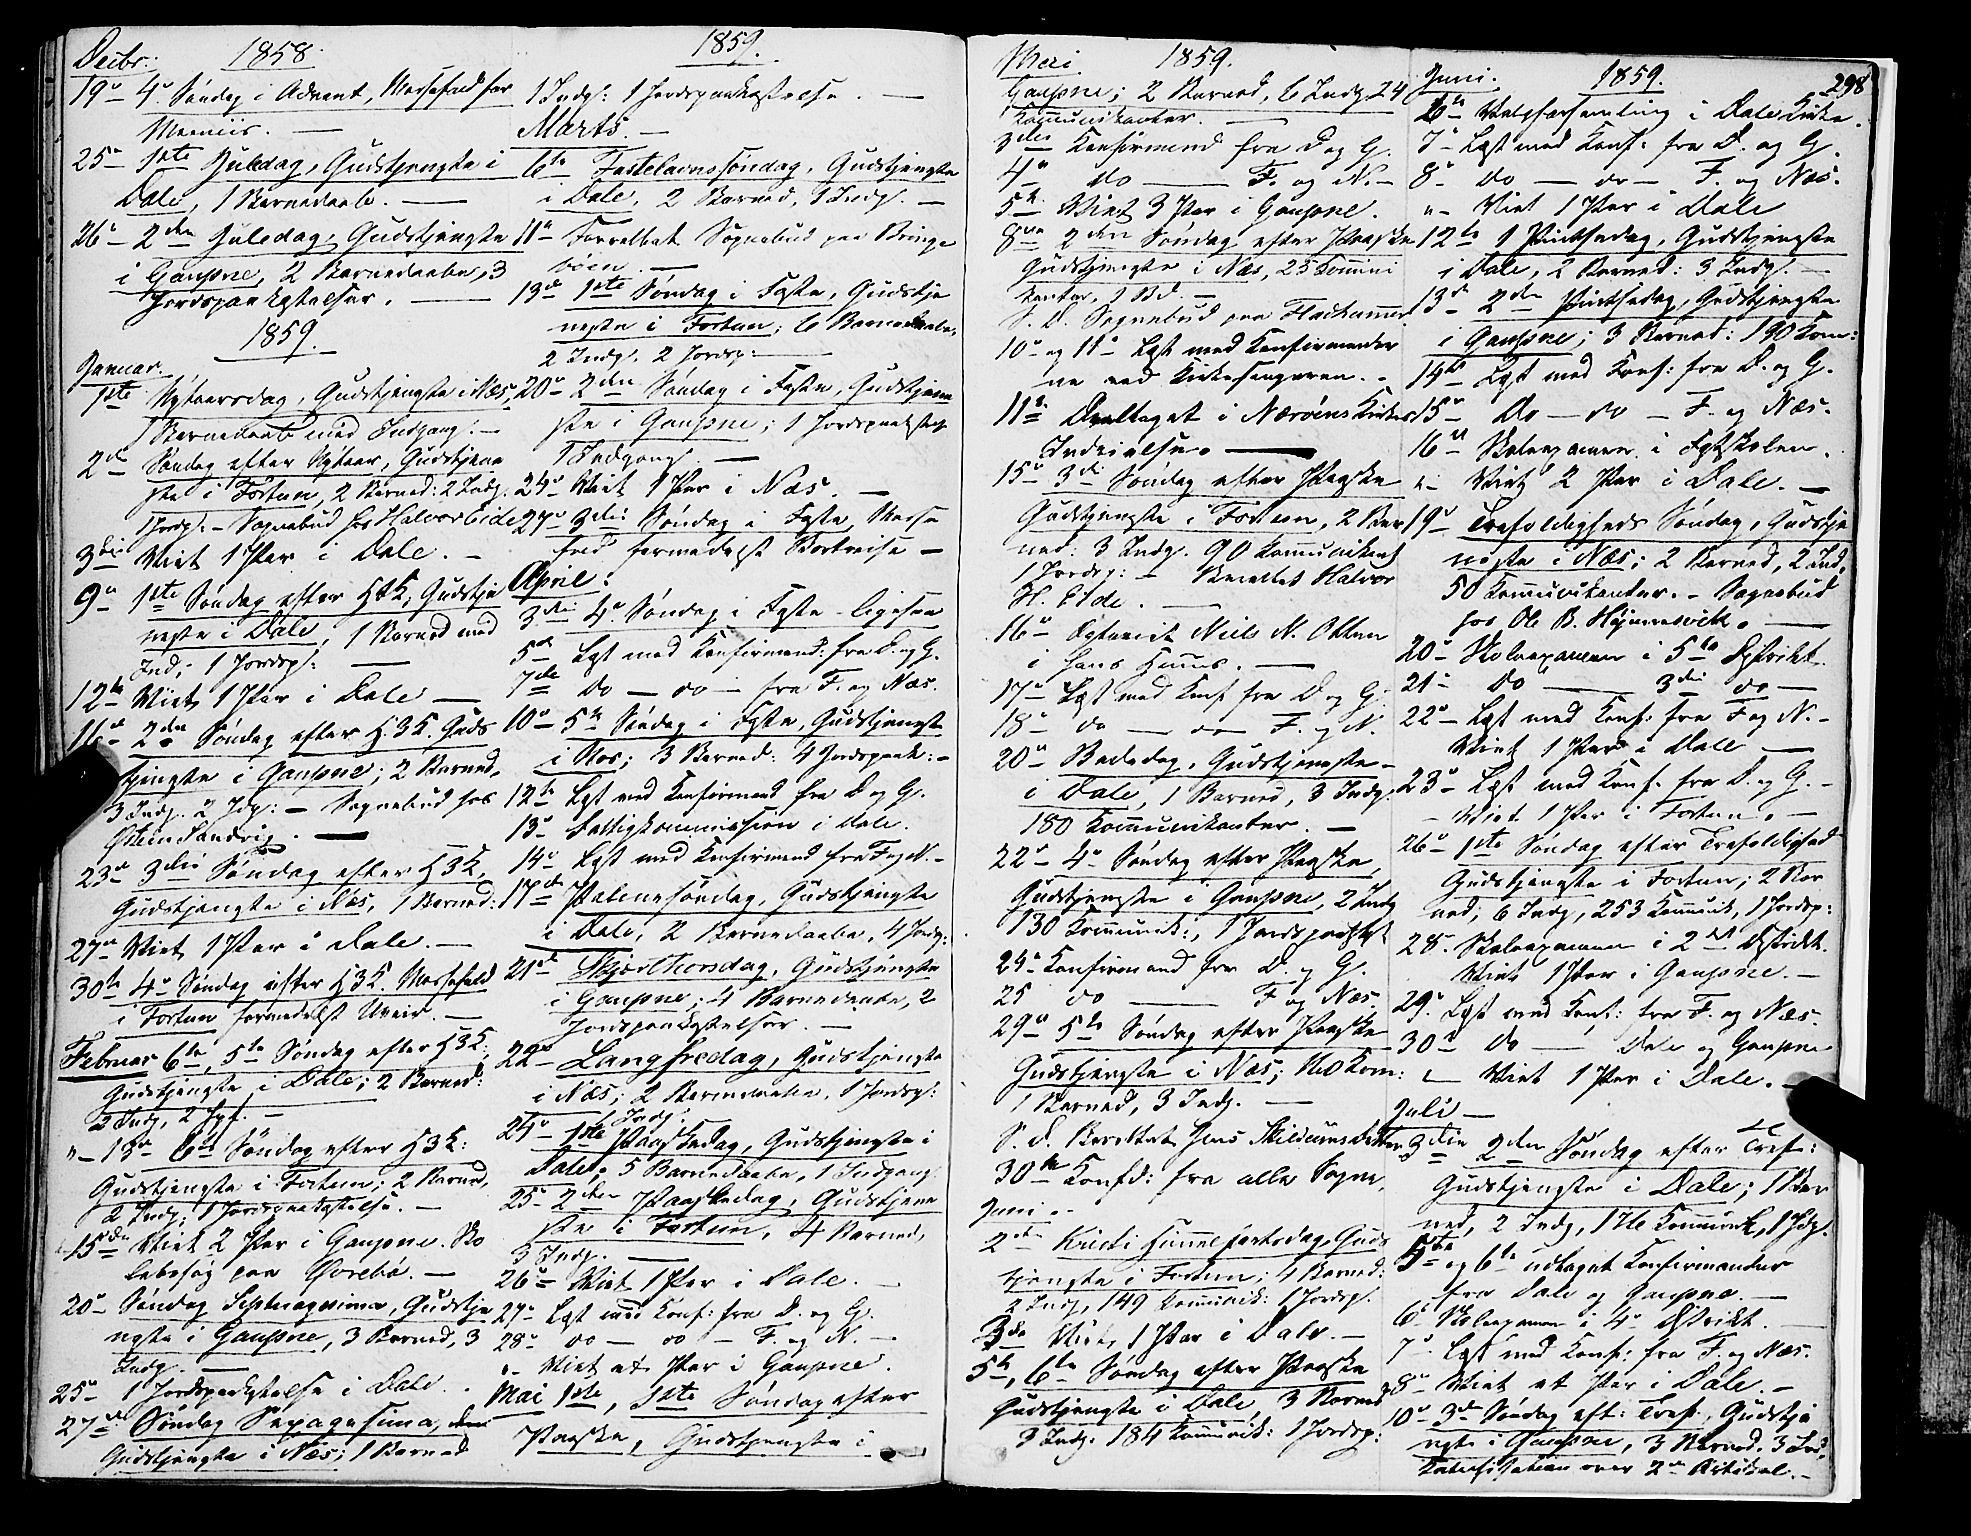 Decbr: 1858.
19de 4de Søndag i Advent, Messefald for
25de 1ste Juledag, Gudstjeneste i
Dale, 1 Barnedaab.
26de 2den Juledag, Gudstjeneste
i Gaupne, 2 Barnedaaber, 3
Jordspaakastelser.
1859.
Januar.
1ste Nytaarsdag, Gudstjeneste i Næs,
1 Barnedaab med Indgang.
2den Søndag efter Nytaar, Gudstjene
ste i Fortun, 2 Barned: 2 Indg:
1 Jordsp: - Sognebud hos Halvor Eide
3die Viet 1 Par i Dale.
9de 1ste Søndag efter H3K, Gudstje
neste i Dale, 1 Barned med
Ind; 1 Jordsp:
12te Viet 1 Par i Dale
16de 2den Søndag efter H.3K. Guds
tjeneste i Gaupne; 2 Barned,
3 Indg. 2 Jdp: - Sognebud hos
23de 3die Søndag efter H3K,
Gudstjeneste i Næs, 1 Barned:
27de Viet 1 Par i Dale.
30te 4de Søndag efter H3K. Messefald
i Fortun formedelst Uveir.
Februar 6te, 5te Søndag efter H3K:
Gudstjeneste i Dale; 2 Barned:
2 Indg, 2 Jpf.
"- 13de 6te Søndag efter H3K:
Gudstjeneste i Fortun; 2 Barned,
2 Indg; 1 Jordspaakastelse.
15de Viet 2 Par i Gaupne. Sko
lebesøg paa
20de Søndag Septuagesima, Gudstje
neste i Gaupne, 3 Barned, 3
Indg.
25de 1 Jordspaakastelse i Dale.
27de Søndag Sexagesima,
Gudstjeneste i Næs; 1 Barned
1859.
1 Indg: 1 Jordspaakastelse.
Marts.
6te Fastelavnssøndag, Gudstjeneste
i Dale, 2 Barned, 1 Indg.
11te Forrettet Sognebud paa Bringe
bøen.
13de 1ste Søndag i Faste, Gudstje
neste i Fortun; 6 Barnedaabe,
2 Indg. 2 Jordsp:
20de 2den Søndag i Faste, Gudstjene
ste i Gaupne; 1 Jordspaakastelse
1 Indgang.
24de Viet 1 Par i Næs.
27de 3die Søndag i Faste, Messe
fald formedelst Bortreise
April:
3die 4de Søndag i Faste ligesaa
5te Læst med Konfirmand: fra D. og G.
7de do - do - fra F. og Næs.
10de 5te Søndag i Faste, Gudstjeneste
i Næs; 3 Barned: 4 Jordspaak:
12te Læst med Konfirmand fra D og G.
13de Fattigkommission i Dale.
14de Læst med Konfirmand fra F og N.
17de Palmesøndag, Gudstjeneste
i Dale, 2 Barnedaabe, 4 Jordsp:
21de Skjærthorsdag, Gudstjeneste
i Gaupne; 4 Barnedaabe, 2
Jordspaakastelser.
22de Langfredag, Gudstjeneste
i Næs; 2 Barnedaabe, 1 Jordsp:
1 Indg.
24de 1ste Paaskedag, Gudstjeneste i
Dale; 5 Barnedaabe, 1 Indgang
25de 2den Paaskedag, Gudstjene
ste i Fortun, 4 Barned,
3 Indg.
26de Viet 1 Par i Dale.
27de Læst med Konf: fra D. og G.
28de do - do - F. og N.
"- Viet et Par i Gaupne.
Mai 1ste, 1ste Søndag efter
Paaske, Gudstjeneste i
Mai 1859.
Gaupne; 2 Barned, 6 Indg 24
Kommunikanter.
3die Konfirmand fra D og G.
4de do - F. og N.
5te Viet 3 Par i Gaupne.
8de 2den Søndag efter Paaske
Gudstjeneste i Næs, 25 Kommuni
kanter, 1 Bd.
S. D. Sognebud paa
10de og 11te Læst med Konfirmander
ne ved Kirkesangeren.
11te Deeltaget i Nærøens Kirkes
Indvielse.
15de 3die Søndag efter Paaske
Gudstjeneste i Fortun, 2 Bar
ned: 3 Indg. 90 Kommunikant
1 Jordsp: - Berettet Halvor
H. Eide.
16de Niels N. Otten
i hans Huus.
17de Læst med Konf fra D og G.
18de do - do F. og N.
20de Bededag, Gudstjeneste
i Dale, 1 Barned, 3 Indg.
180 Kommunikanter.
22de 4de Søndag efter Paaske,
Gudstjeneste i Gaupne, 2 Indg
130 Kommunik:, 1 Jordspaakast
24de Konfirmand fra D. og G.
25 do F og Næs.
29de 5te Søndag efter Paaske
Gudstjeneste i Næs; Kom:
1 Barned, 3 Indg.
S. D. Berettet Jens
30te Konfd: fra alle Sogne,
Juni.
2den Kristi Himmelfartsdag, Guds
tjeneste i Fortun; 4 Barned:
2 Indg, 149 Kommunik: 1 Jordsp.
3die Viet 1 Par i Dale.
5te, 6te Søndag efter Paaske
Gudstjeneste i Dale, 3 Barned
3 Indg. 184 Kommunik: 1 Jordsp:
Juni. 1859. 298
6te Valgforsamling i Dale Kirke.
7de Læst med Konf: fra D. og G.
8de do - do - F. og Næs.
"- Viet 1 Par i Dale
12te 1 Pintsedag, Gudstjeneste
i Dale, 2 Barned: 3 Indg.
13de 2den Pintsedag, Gudstjeneste
i Gaupne; 3 Barned: 190 Kom:
14de Læst med Konf: fra D. og G.
15de Do - do - F. og Næs.
16de Skoleexamen i Fastskolen.
"- Viet 2 Par i Dale.
19de Trefoldigheds Søndag, Gudstje
neste i Næs; 2 Barned, 2 Ind,
50 Kommunikanter. - Sognebud
hos Ole B.
20de Skoleexamen i 5te Distrikt
21de do - 3die do
22de Læst med Konf: fra F og N.
Viet 1 Par i Dale
23de Læst med Konf. fra D. og G.
- Viet 1 Par i Fortun.
26de 1ste Søndag efter Trefoldighed
Gudstjeneste i Fortun; 2 Bar
ned, 6 Indg, 253 Kommunik, 1 Jordsp:
28. Skoleexamen i 2det Distrikt.
Viet 1 Par i Gaupne.
29de Læst med Konf: fra F. og Næs.
30te do - Dale og Gaupne
"- Viet 1 Par i Dale.
Juli
3die 2den Søndag efter Tref:
Gudstjeneste i Dale; 1 Bar
ned, 2 Indg, 176 Kommunik, 1 Jdp.
5te og 6te udtaget Konfirmander
fra Dale og Gaupne.
6te Skoleexamen i 4de Distrikt.
7de Læst med Konf: fra F. og Næs.
8de Viet et Par i Dale.
10de 3die Søndag eft: Tref., Gudstje
neste i Gaupne, 3 Barned. 3 Ind,
Katekisation over 2den Artikel.